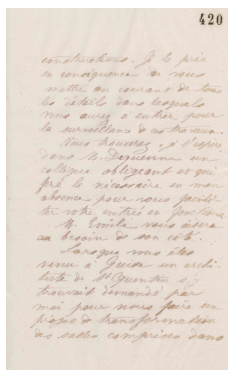 420
constructions. Je le prie
en conséquence de vous
mettre au courant de tous
les détails dans lesquels
vous aurez à entrer pour
la surveillance de ces travaux.
Vous trouverez, je l'espère
dans M. Dequenne un
collègue obligeant et qui
fera le nécessaire en mon
absence pour vous facili-
ter votre entrée en fonctions
M. Émile vous aidera
au besoin de son côté.
Lorsque vous êtes
venu à Guise un archi-
tecte de St Quentin s'y
trouvait demandé par
moi pour nous faire un
projet de transformation
des salles comprises dans